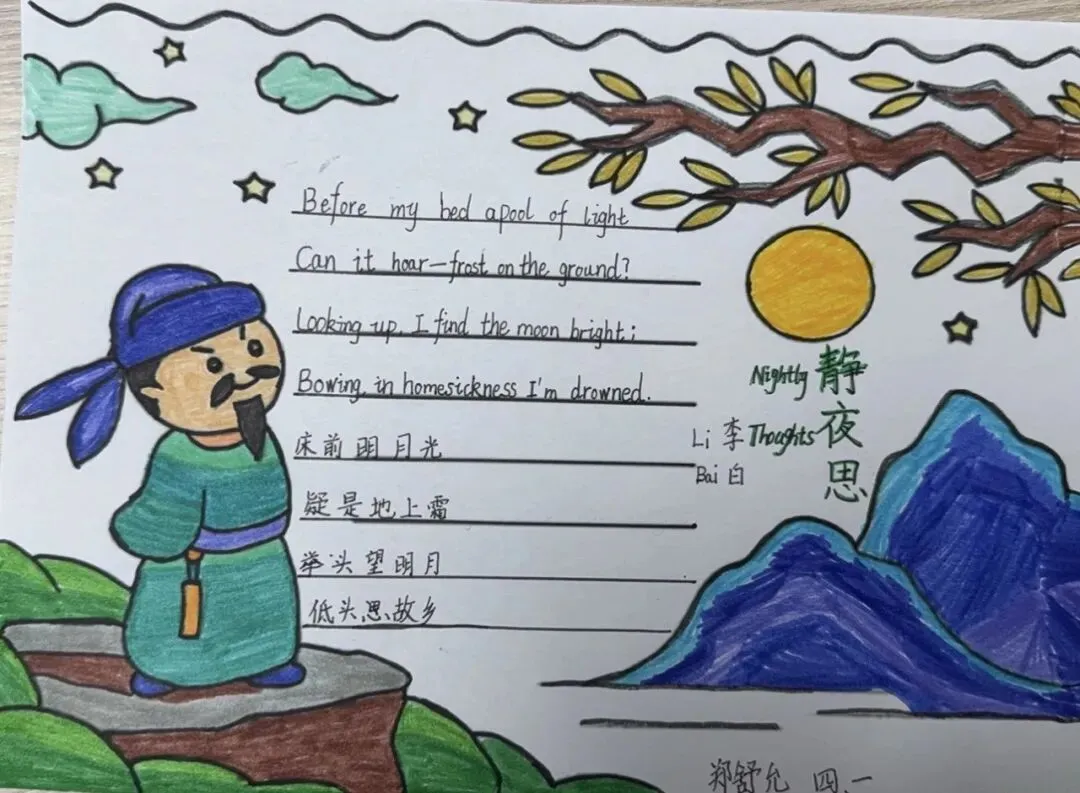 Before my bed a pool of light
Can it hoar-frost on the ground?
Looking up, I find the moon bright;
Bowing, in homesickness I'm drowned.
床前明月光
疑是地上霜
举头望明月
低头思故乡
Nightly Thoughts
静夜思
Li Bai
李白
郑舒允 四.一